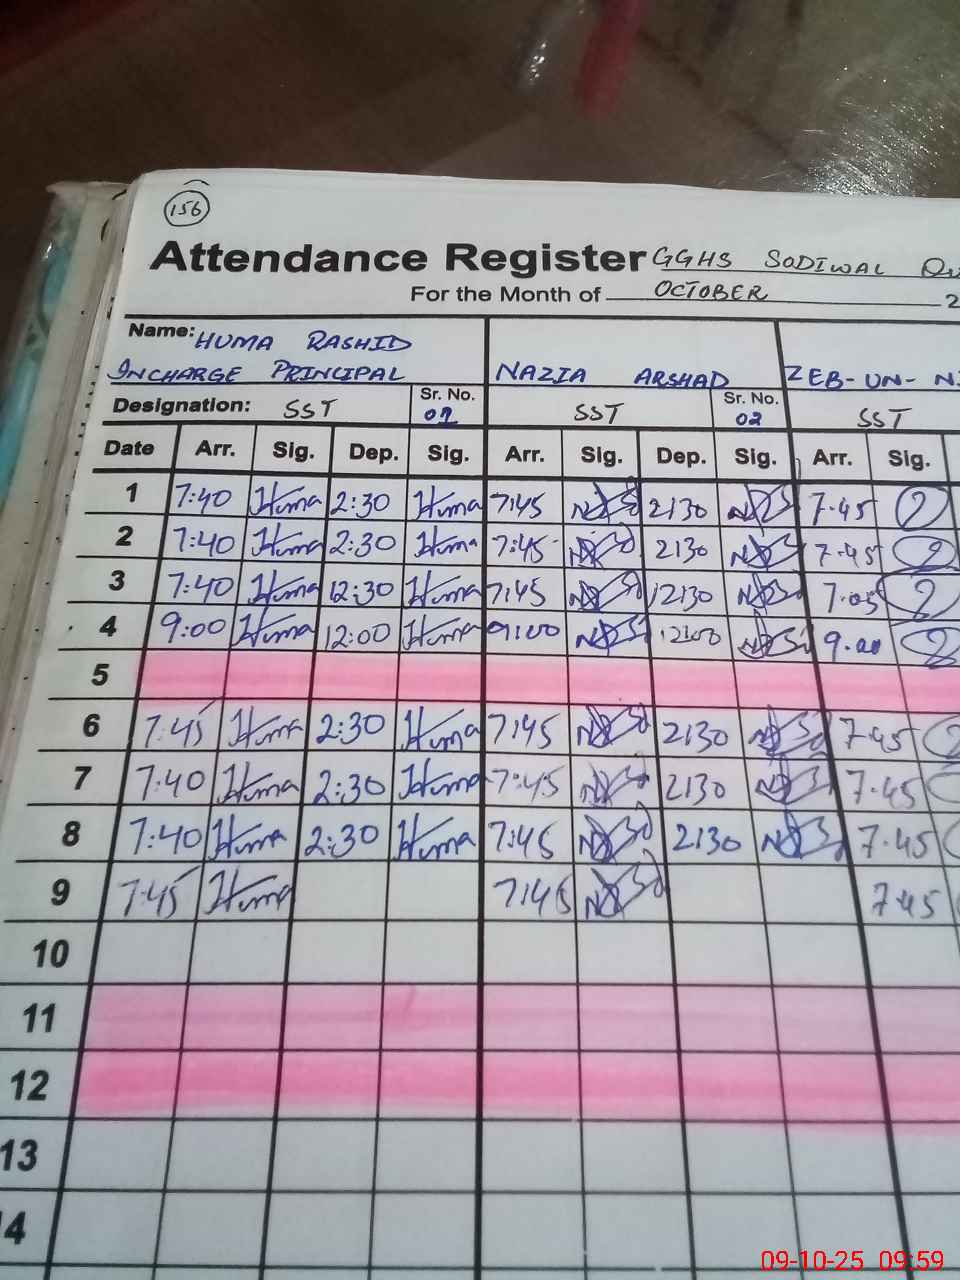 156
Attendance Register GGHS SODIWAL
For the Month of OCTOBER 2
Name: HUMA RASHID
INCHARGE PRINCIPAL NAZIA ARSHAD ZEB-UN-
Designation: SST Sr. No. 01 SST Sr. No. 02 SST
Date Arr. Sig. Dep. Sig. Arr. Sig. Dep. Sig. Arr. Sig.
1 7:40 Huma 2:30 Huma 7:45 2:30 7.45
2 7:40 Huma 2:30 Huma 7:45 2:30 7.45
3 7:40 Huma 12:30 Huma 7:45 12:30 7.05
4 9:00 Huma 12:00 Huma 9:00 12:00 9.00
5
6 7:45 Huma 2:30 Huma 7:45 2:30 7.45
7 7:40 Huma 2:30 Huma 7:45 2:30 7.45
8 7:40 Huma 2:30 Huma 7:45 2:30 7.45
9 7:45 Huma 7:45 7.45
10
11
12
13
14
09-10-25 09:59